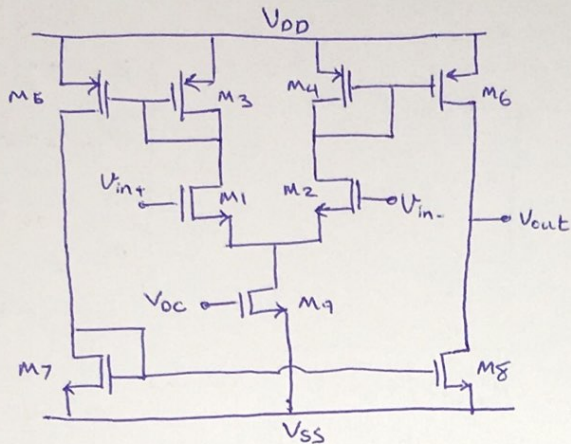 VDD
M5
M3
M4
M6
Vin+
M1
M2
Vin-
Vout
VDC
M9
M7
M8
VSS